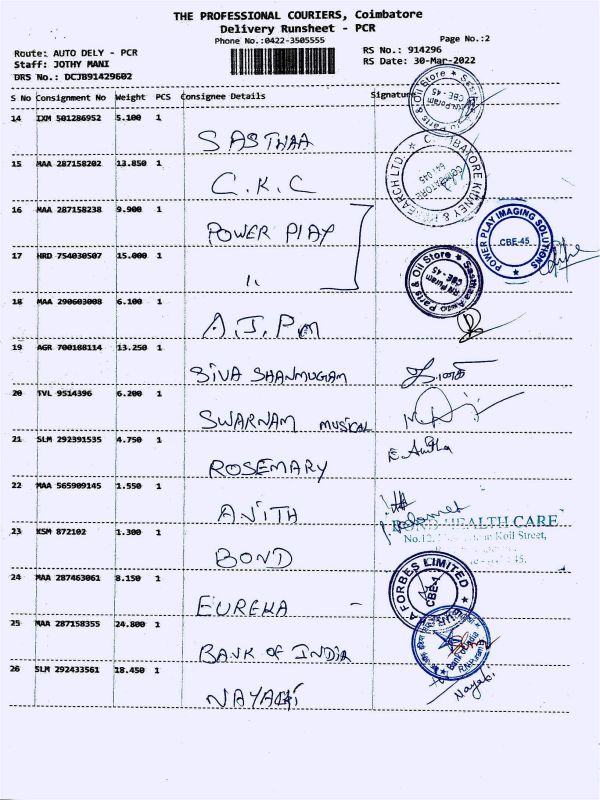 THE PROFESSIONAL COURIERS, Coimbatore
Delivery Runsheet - PCR
Phone No.:0422-3505555
Page No.:2
Route: AUTO DELY - PCR
RS No.: 914296
Staff: JOTHY MANI
RS Date: 30-Mar-2022
DRS No.: DCJB91429602
S No Consignment No Weight PCS Consignee Details Signature
14 IXM 501286952 5.100 1
SASTHAA
15 MAA 287158202 13.850 1
C.K.C
16 MAA 287158238 9.900 1
POWER PLAY
17 HRD 754030507 15.000 1
18 MAA 290603008 6.100 1
A.J.Pm
19 AGR 700168114 13.250 1
SIVA SHANMUGAM
20 TVL 9514396 6.200 1
SWARNAM MUSICAL
21 SLM 292391535 4.750 1
E. Anitha
ROSEMARY
22 MAA 565909145 1.550 1
AJITH
23 KSM 872102 1.300 1
BOND
24 MAA 287463061 8.150 1
EUREKA -
25 MAA 287158355 24.800 1
BANK OF INDIA
26 SLM 292433561 18.450 1
NAYAKI
Nayaki
Sasthaa Auto Parts & Oil Store
RN Puram
CBE-45
COIMBATORE KIDNEY & RESEARCH LTD.
COIMBATORE
641 045
POWER PLAY IMAGING SOLUTIONS
CBE-45
BOND HEALTH CARE
No.12, Koil Street,
FORBES LIMITED
CBE-1
Bank of India
R.N.Puram